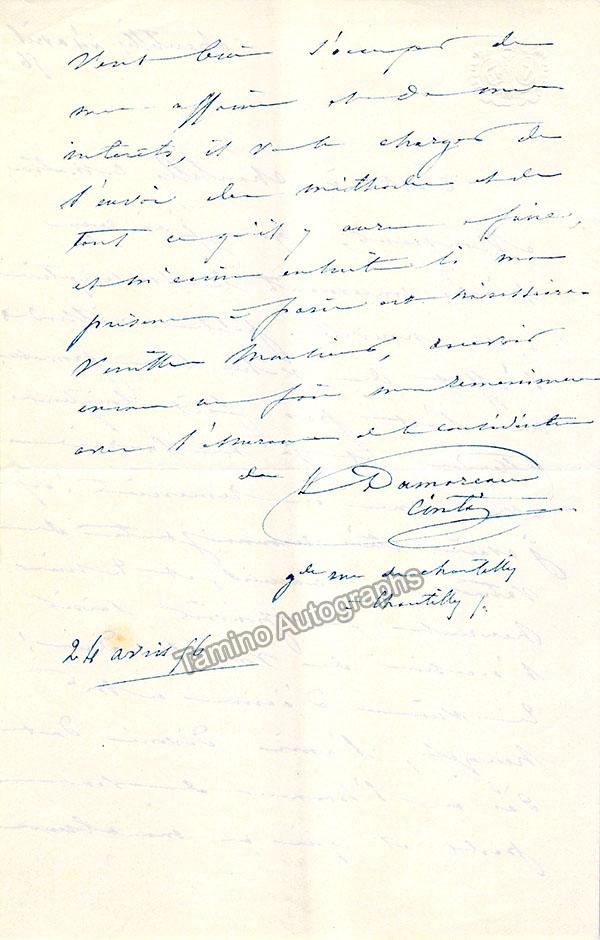 veut bien s'occuper de
mes affaires et de mes
interets, il va se charger de
l'envoi des méthodes et de
tout ce qu'il y aura a faire,
et m'écrira ensuite si ma
présence a paris est nécessaire
Veuillez Monsieur, recevoir
encore une fois mes remerciemens
avec l'assurance de la considération
de
Damoreau
Cinti
gde rue de chantilly
a Chantilly
24 avril 56
Tamino Autographs